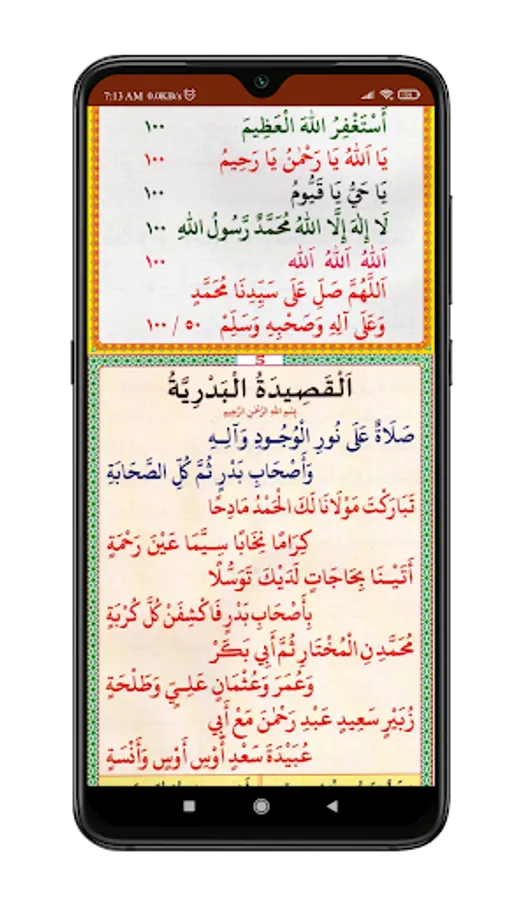 7:13 AM 0.0KB/s
أَسْتَغْفِرُ اللهَ الْعَظِيمَ ١٠٠
يَا اَللهُ يَا رَحْمٰنُ يَا رَحِيمُ ١٠٠
يَا حَيُّ يَا قَيُّومُ ١٠٠
لَا إِلٰهَ إِلَّا اللهُ مُحَمَّدٌ رَّسُولُ اللهِ ١٠٠
اَللهُ اَللهُ اَللهْ ١٠٠
اَللَّهُمَّ صَلِّ عَلَى سَيِّدِنَا مُحَمَّدٍ
وَعَلَى آلِهِ وَصَحْبِهِ وَسَلِّمْ ٥٠ / ١٠٠
5
اَلْقَصِيدَةُ الْبَدْرِيَّةُ
بِسْمِ اللهِ الرَّحْمٰنِ الرَّحِيمِ
صَلَاةٌ عَلَى نُورِ الْوُجُودِ وَآلِهِ
وَأَصْحَابِ بَدْرٍ ثُمَّ كُلِّ الصَّحَابَةِ
تَبَارَكْتَ مَوْلَانَا لَكَ الْحَمْدُ مَادِحًا
كِرَامًا نِخَابًا سِيَّمَا عَيْنَ رَحْمَةٍ
أَتَيْنَا بِحَاجَاتٍ لَدَيْكَ تَوَسُّلًا
بِأَصْحَابِ بَدْرٍ فَاكْشِفَنْ كُلَّ كُرْبَةٍ
مُحَمَّدِنِ الْمُخْتَارِ ثُمَّ أَبِي بَكَرْ
وَعُمَرَ وَعُثْمَانٍ عَلِيٍّ وَطَلْحَةٍ
زُبَيْرٍ سَعِيدٍ عَبْدِ رَحْمٰنَ مَعْ أَبِي
عُبَيْدَةَ سَعْدٍ أَوْسِ أَوْسٍ وَأَنْسَةٍ